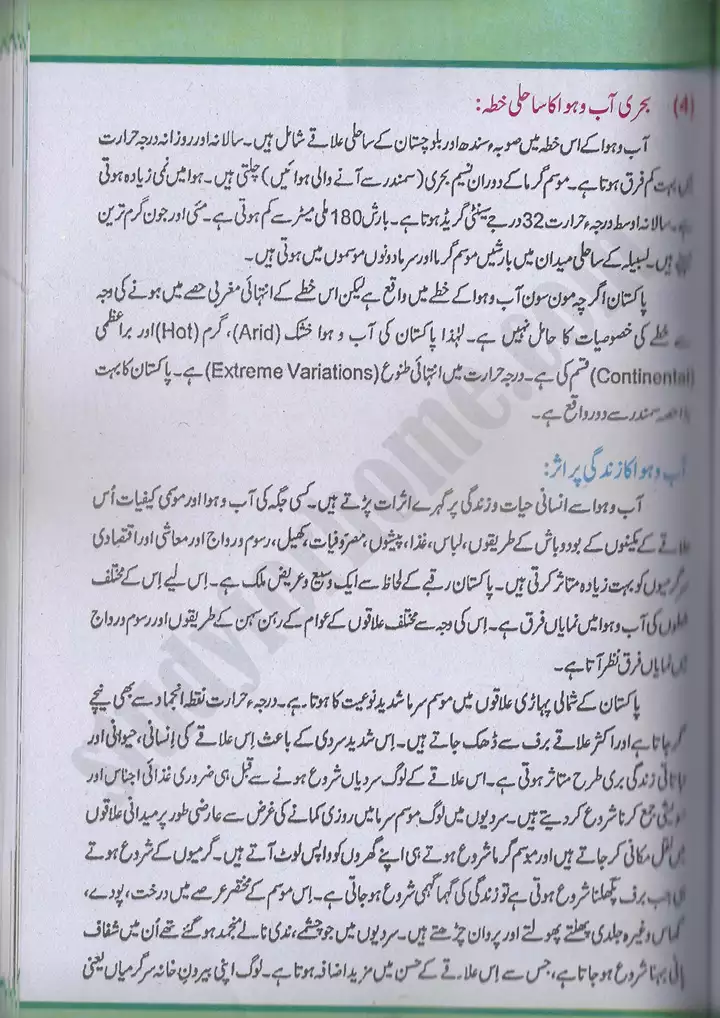 (4) بحری آب و ہوا کا ساحلی خطہ:
آب و ہوا کے اس خطہ میں صوبہ سندھ اور بلوچستان کے ساحلی علاقے شامل ہیں۔ سالانہ اور روزانہ درجہ حرارت
بہت کم فرق ہوتا ہے۔ موسم گرما کے دوران نسیم بحری (سمندر سے آنے والی ہوائیں) چلتی ہیں۔ ہوا میں نمی زیادہ ہوتی
سالانہ اوسط درجہء حرارت 32 درجے سینٹی گریڈ ہوتا ہے۔ بارش 180 ملی میٹر سے کم ہوتی ہے۔ مئی اور جون گرم ترین
ہیں۔ لسبیلہ کے ساحلی میدان میں بارشیں موسم گرما اور سرما دونوں موسموں میں ہوتی ہیں۔
پاکستان اگرچہ مون سون آب و ہوا کے خطے میں واقع ہے لیکن اس خطے کے انتہائی مغربی حصے میں ہونے کی وجہ
خطے کی خصوصیات کا حامل نہیں ہے۔ لہٰذا پاکستان کی آب و ہوا خشک (Arid)، گرم (Hot) اور براعظمی
(Continental) قسم کی ہے۔ درجہ حرارت میں انتہائی طنوع (Extreme Variations) ہے۔ پاکستان کا بہت
حصہ سمندر سے دور واقع ہے۔
آب و ہوا کا زندگی پر اثر:
آب و ہوا سے انسانی حیات و زندگی پر گہرے اثرات پڑتے ہیں۔ کسی جگہ کی آب و ہوا اور موسمی کیفیات اُس
علاقے کے مکینوں کے بودوباش کے طریقوں، لباس، غذا، پیشوں، مصروفیات، کھیل، رسوم و رواج اور معاشی اور اقتصادی
سرگرمیوں کو بہت زیادہ متاثر کرتی ہیں۔ پاکستان رقبے کے لحاظ سے ایک وسیع و عریض ملک ہے۔ اِس لیے اِس کے مختلف
خطوں کی آب و ہوا میں نمایاں فرق ہے۔ اِس کی وجہ سے مختلف علاقوں کے عوام کے رہن سہن کے طریقوں اور رسوم و رواج
میں نمایاں فرق نظر آتا ہے۔
پاکستان کے شمالی پہاڑی علاقوں میں موسم سرما شدید نوعیت کا ہوتا ہے۔ درجہء حرارت نقطہ انجماد سے بھی نیچے
گر جاتا ہے اور اکثر علاقے برف سے ڈھک جاتے ہیں۔ اِس شدید سردی کے باعث اِس علاقے کی اِنسانی، حیوانی اور
نباتاتی زندگی بری طرح متاثر ہوتی ہے۔ اس علاقے کے لوگ سردیاں شروع ہونے سے قبل ہی ضروری غذائی اجناس اور
مویشی جمع کرنا شروع کر دیتے ہیں۔ سردیوں میں لوگ موسم سرما میں روزی کمانے کی غرض سے عارضی طور پر میدانی علاقوں
میں نقل مکانی کر جاتے ہیں اور موسم گرما شروع ہوتے ہی اپنے گھروں کو واپس لوٹ آتے ہیں۔ گرمیوں کے شروع ہوتے
جب برف پگھلنا شروع ہوتی ہے تو زندگی کی گہما گہمی شروع ہو جاتی ہے۔ اِس موسم کے مختصر عرصے میں درخت، پودے،
گھاس وغیرہ جلدی پھلتے پھولتے اور پروان چڑھتے ہیں۔ سردیوں میں جو چشمے، ندی نالے منجمد ہو گئے تھے اُن میں شفاف
پانی بہنا شروع ہو جاتا ہے، جس سے اِس علاقے کے حسن میں مزید اضافہ ہوتا ہے۔ لوگ اپنی بیرونِ خانہ سرگرمیاں یعنی